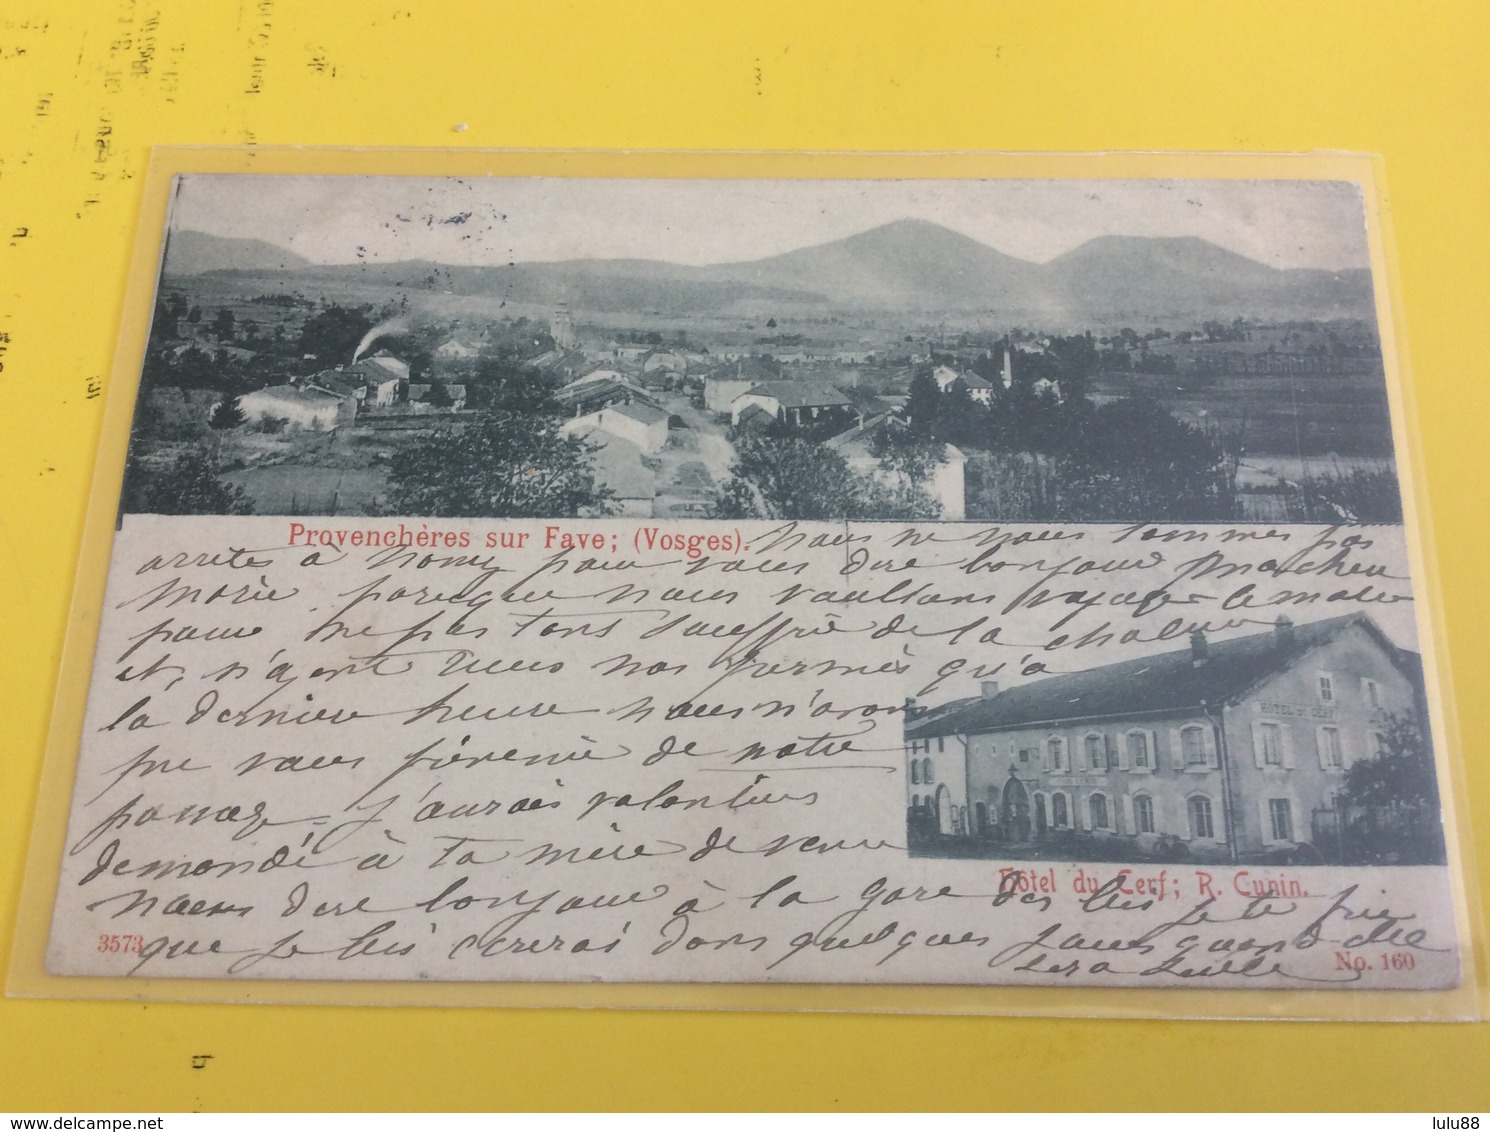 Provenchères sur Fave; (Vosges). nous ne nous sommes pas
arretes à pour vous dire bonjour ma chere
Marie parceque nous voulions voyager le matin
pour ne pas tant souffrir de la chaleur
et, n'ayant reçus nos permis qu'a
la derniere heure nous n'avons
pu vous prévenir de notre
passage j'aurais volontiers
demandé à ta mère de venir
HÔTEL DU CERF
Hôtel du Cerf; R. Cunin.
nous dire bonjour à la gare dis lui je te prie
3573 que je lui ecrerai dans quelques jours quand elle
sera seule
No. 160
lulu88